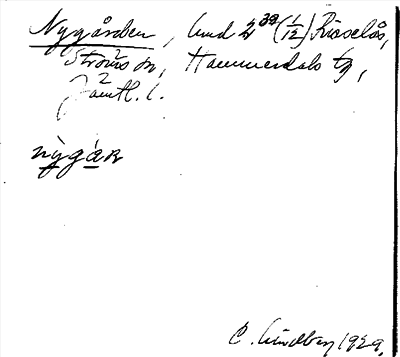 Nygården, lmd 2³² (1/12) Risselås,
Ströms sn, Hammerdals tg,
Jämtl. l.
nỳgáʀ
C. Lindberg 1929.